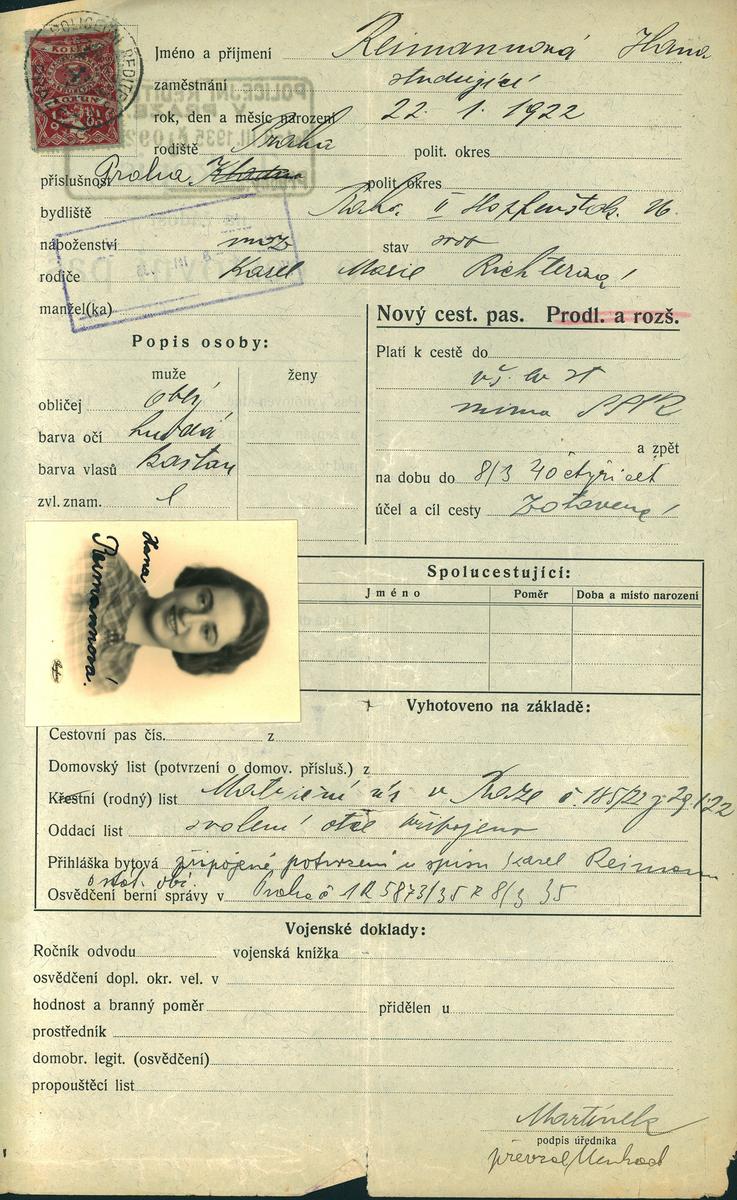 POLICEJNÍ ŘEDITE
Jméno a příjmení Reimannová Hana
zaměstnání studující
rok, den a měsíc narození 22. 1. 1922
rodiště Praha polit. okres
příslušnost Praha polit. okres
bydliště Praha II 26.
náboženství stav
rodiče Karel Marie Richterová
manžel(ka)
Nový cest. pas. Prodl. a rozš.
Popis osoby:
muže ženy
obličej oblý
barva očí hnědá
barva vlasů kaštan
zvl. znam.
Platí k cestě do
mimo
a zpět
na dobu do 8/3 40 čtyřicet
účel a cíl cesty zotavená
Hana
Reimannová.
Spolucestující:
Jméno Poměr Doba a místo narození
Vyhotoveno na základě:
Cestovní pas čís. z
Domovský list (potvrzení o domov. přísluš.) z
Křestní (rodný) list Matriční úř. v Praze č. 185/22 z 29 1 22
Oddací list svolení otce připojeno
Přihláška bytová připojené potvrzení u spisu Karel Reimann
Osvědčení berní správy v Praha 1R 5873/35 z 8/3 35
Vojenské doklady:
Ročník odvodu vojenská knížka
osvědčení dopl. okr. vel. v
hodnost a branný poměr přidělen u
prostředník
domobr. legit. (osvědčení)
propouštěcí list
Martínek
podpis úředníka
převzal